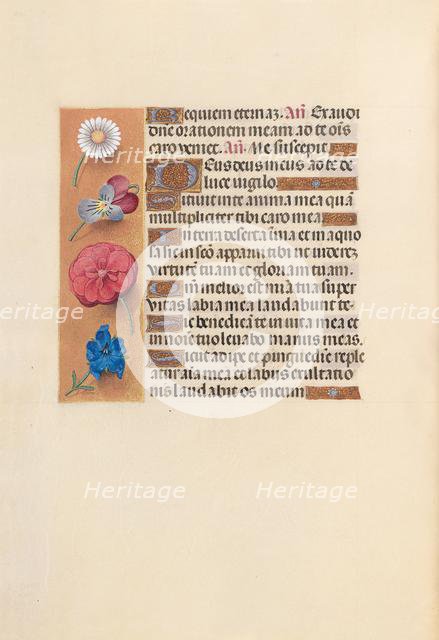 Requiem eternaz. Añ Exaudi
dñe orationem meam ad te oīs
caro veniet. Añ. Me suscepit
Deus deus meus ad te de
luce vigilo
Sitivit in te anima mea quā
multipliciter tibi caro mea
In terra deserta invia et in aquo
sa sic in scō apparui tibi ut viderez
virtutē tuam et gloriam tuam.
melior est mīa tua super
vitas labia mea laudabunt te
Sic benedicā te in vita mea et
in noīe tuo levabo manus meas.
Sicut adipe et pinguedīe reple
atur aīa mea et labiis exultatio
nis laudabit os meum
Heritage
Heritage
Heritage
Heritage
Heritage
Heritage